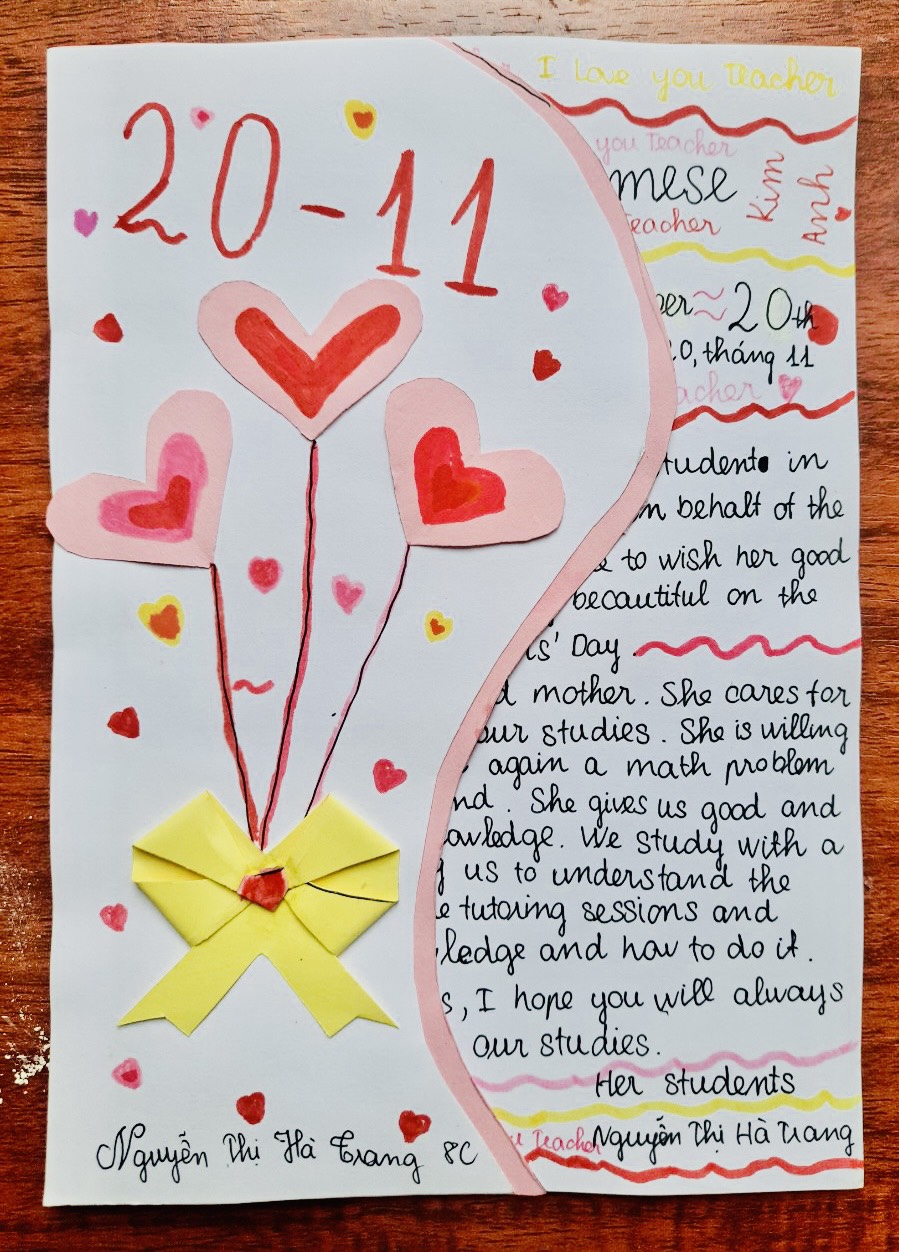 20-11
Nguyễn Thị Hà Trang 8C
I Love you Teacher
you Teacher
mese
Teacher
Kim
Anh
20th
tháng 11
tudent in
behalf of the
to wish her good
becautiful on the
Day
mother. She cares for
our studies. She is willing
again a math problem
She gives us good and
owledge. We study with a
us to understand the
tutoring sessions and
ledge and how to do it.
, I hope you will always
our studies.
Her students
Teacher
Nguyễn Thị Hà Trang